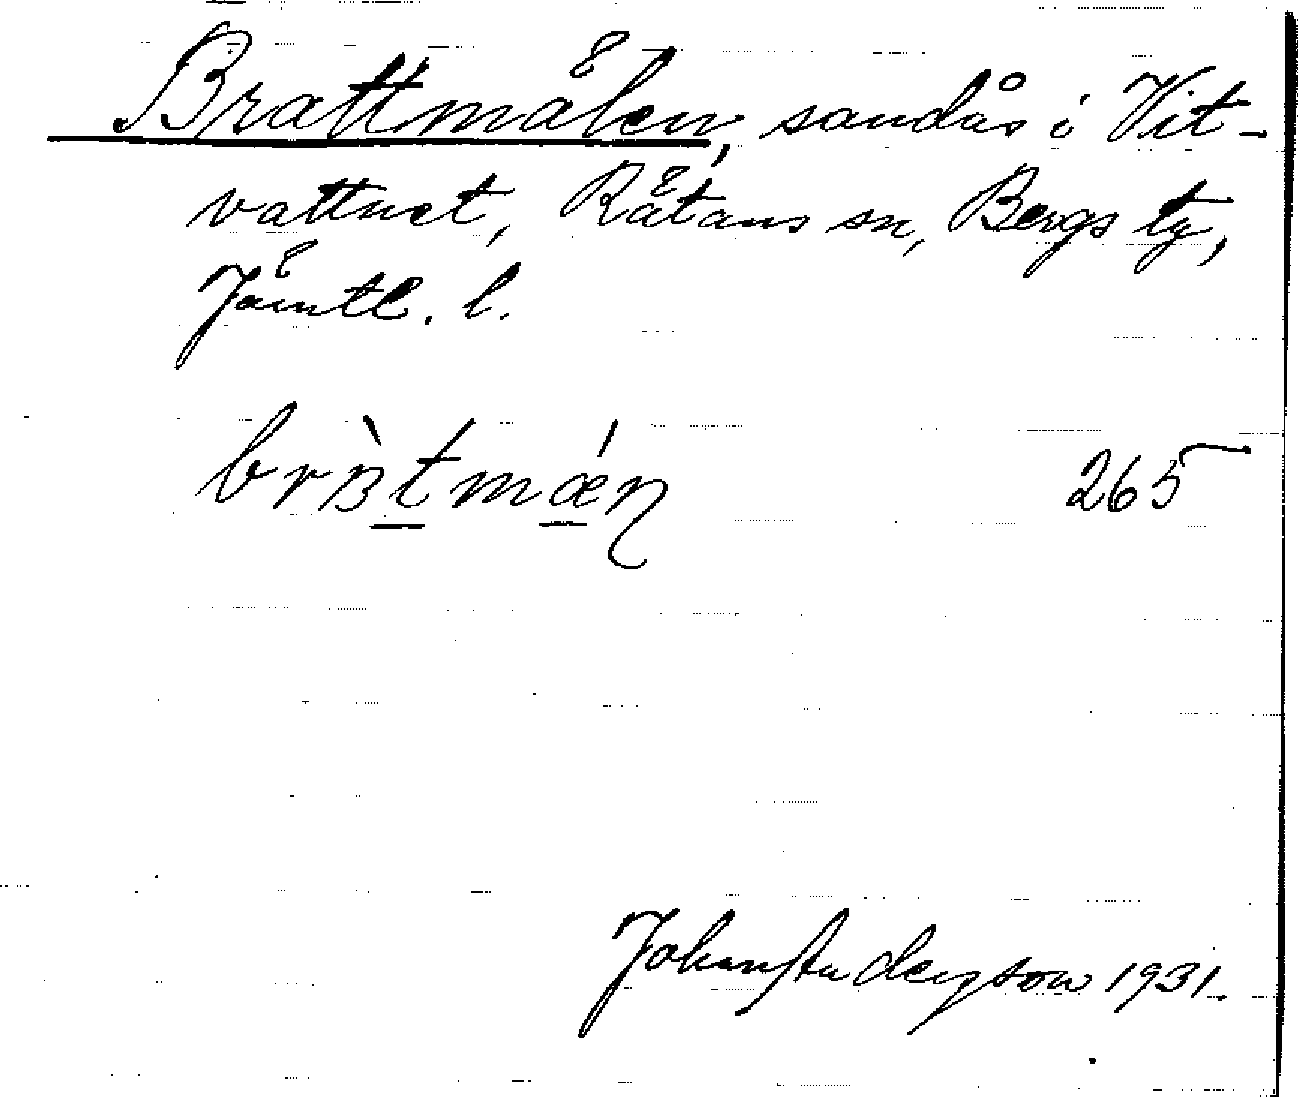 Brattmålen, sandås i Vit-
vattnet, Rätans sn, Bergs tg,
Jämtl. l.
265
Johan Anderson 1931.